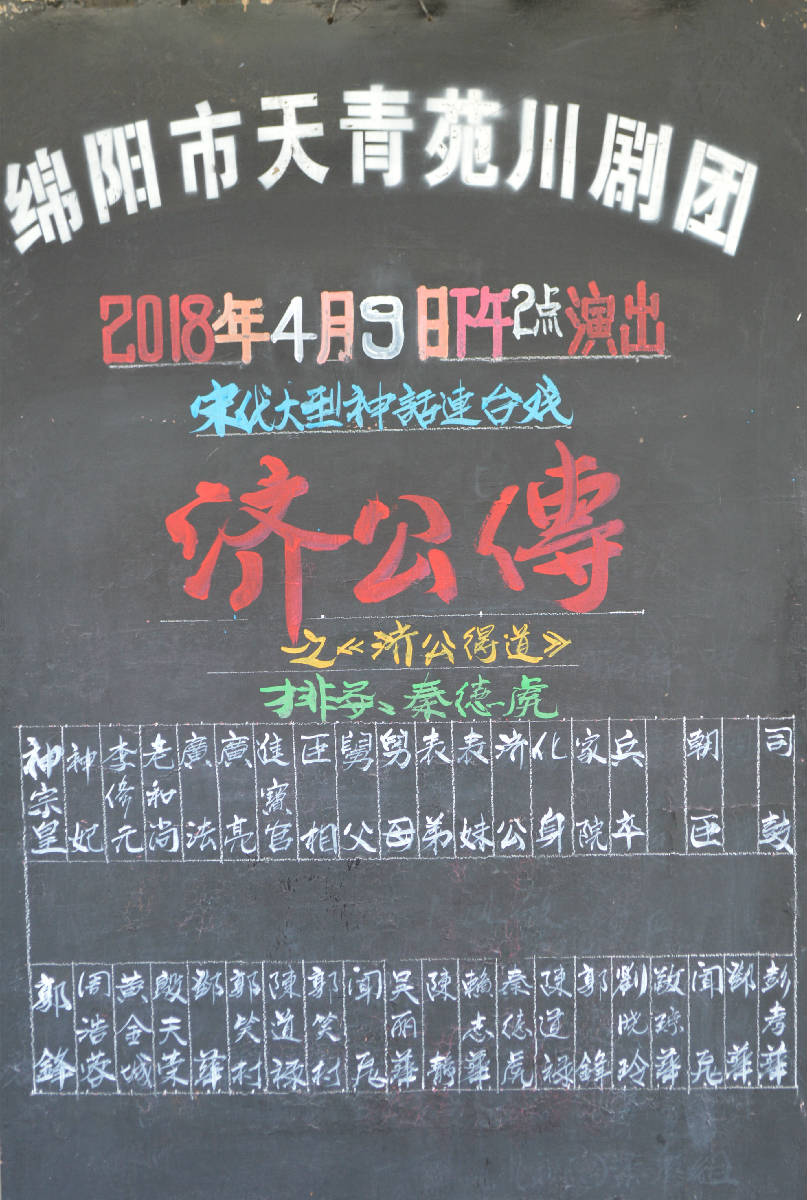 绵阳市天青苑川剧团
2018年4月9日下午2点演出
宋代大型神話連台戏
济公傳
之《济公得道》
排子、秦德虎
神宗皇 神妃 李修元 老和尚 廣法 廣亮 佳賓官 臣相 舅父 舅母 表弟 表妹 济公 化身 家院 兵卒 朝臣 司鼓
郭鋒 周浩蓉 黄金城 殷天荣 邓華 郭笑村 陳道禄 郭笑村 闻飞 吴丽華 陳静 賴志華 秦德虎 陳道禄 郭鋒 劉晓玲 敬琼華 闻飞 邓華 彭孝華